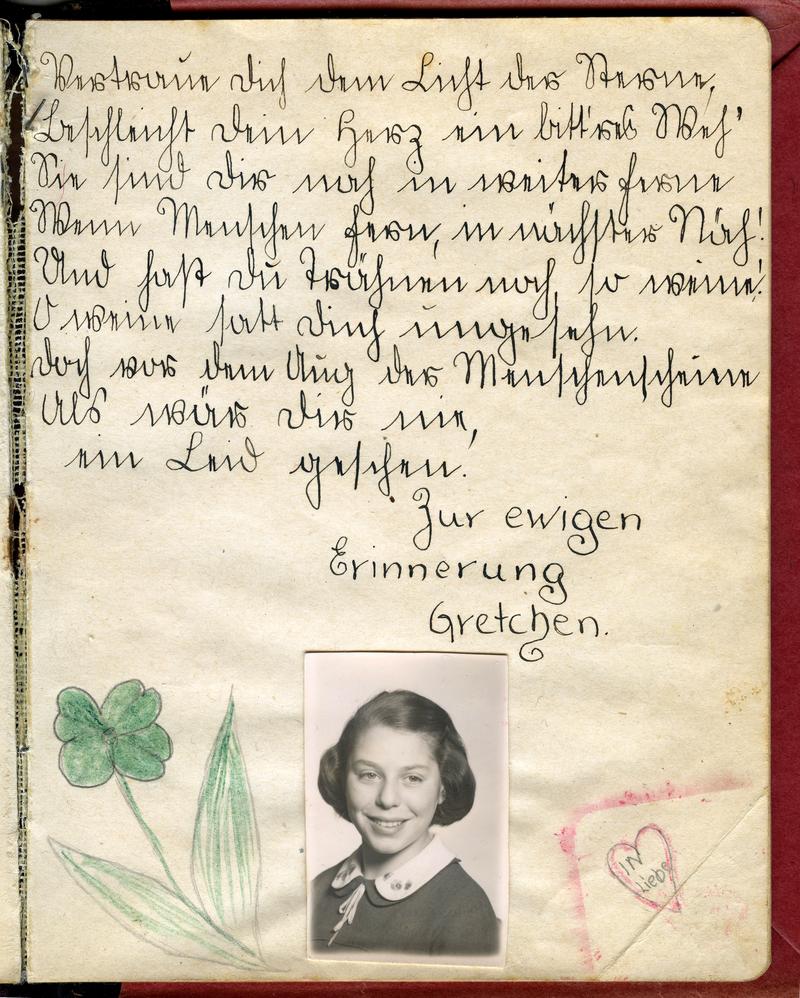 Vertraue Dich dem Licht der Sterne,
Beschleicht Dein Herz ein bitt'res Weh'
Sie sind Dir nah in weiter ferne
Wenn Menschen fern, in nächster Näh'!
Und hast Du Trähnen noch, so weine!
O weine satt Dich ungesehn.
Doch vor dem Aug der Menschenscheine
Als wär Dir nie,
ein Leid geschen.
Zur ewigen
Erinnerung
Gretchen.
IN
Liebe